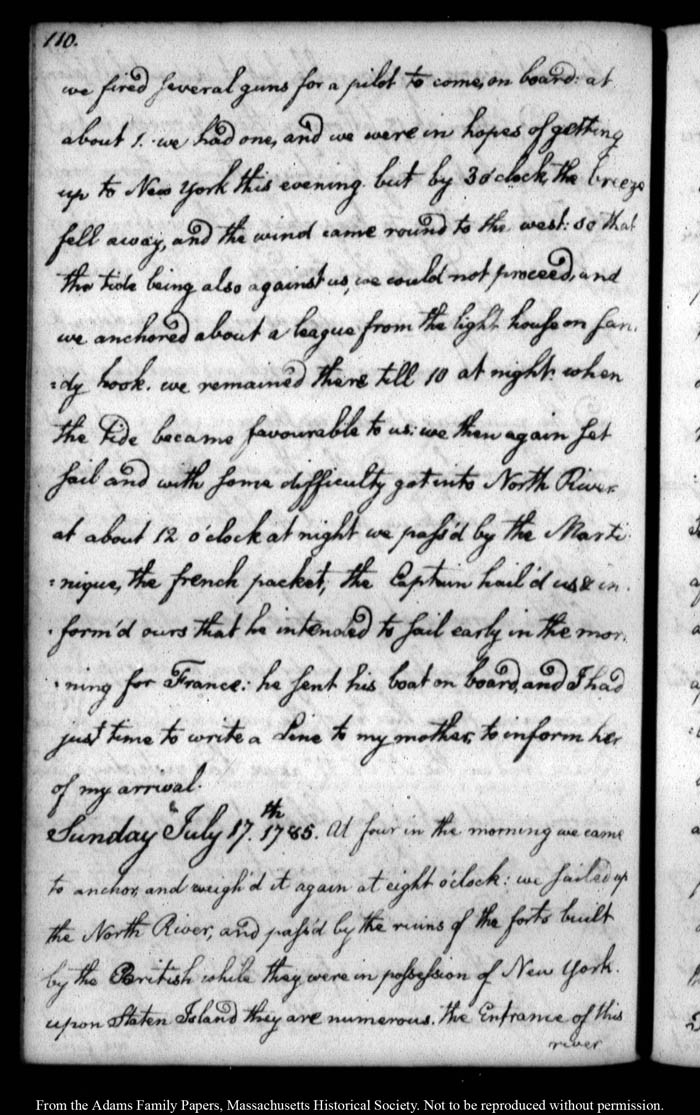 110.
we fired several guns for a pilot to come, on board: at
about 1. we had one, and we were in hopes of getting
up to New York this evening. but by 3 o'clock, the breeze
fell away, and the wind came round to the west: so that
the tide being also against us, we could not proceed, and
we anchored about a league from the light house on San:
:dy hook. we remained there till 10 at night: when
the tide became favourable to us: we then again set
sail and with some difficulty got into North River.
at about 12 o'clock at night we pass'd by the Marti:
:nique, the french packet; the Captain hail'd us & in:
:form'd ours that he intended to sail early in the mor:
:ning for France: he sent his boat on board, and I had
just time to write a Line to my mother, to inform her
of my arrival.
Sunday July 17.th 1785. At four in the morning we came
to anchor, and weigh'd it again at eight o'clock: we sailed up
the North River, and pass'd by the ruins of the forts built
by the British while they were in possession of New York.
upon Staten Island they are numerous. the Entrance of this
river
From the Adams Family Papers, Massachusetts Historical Society. Not to be reproduced without permission.